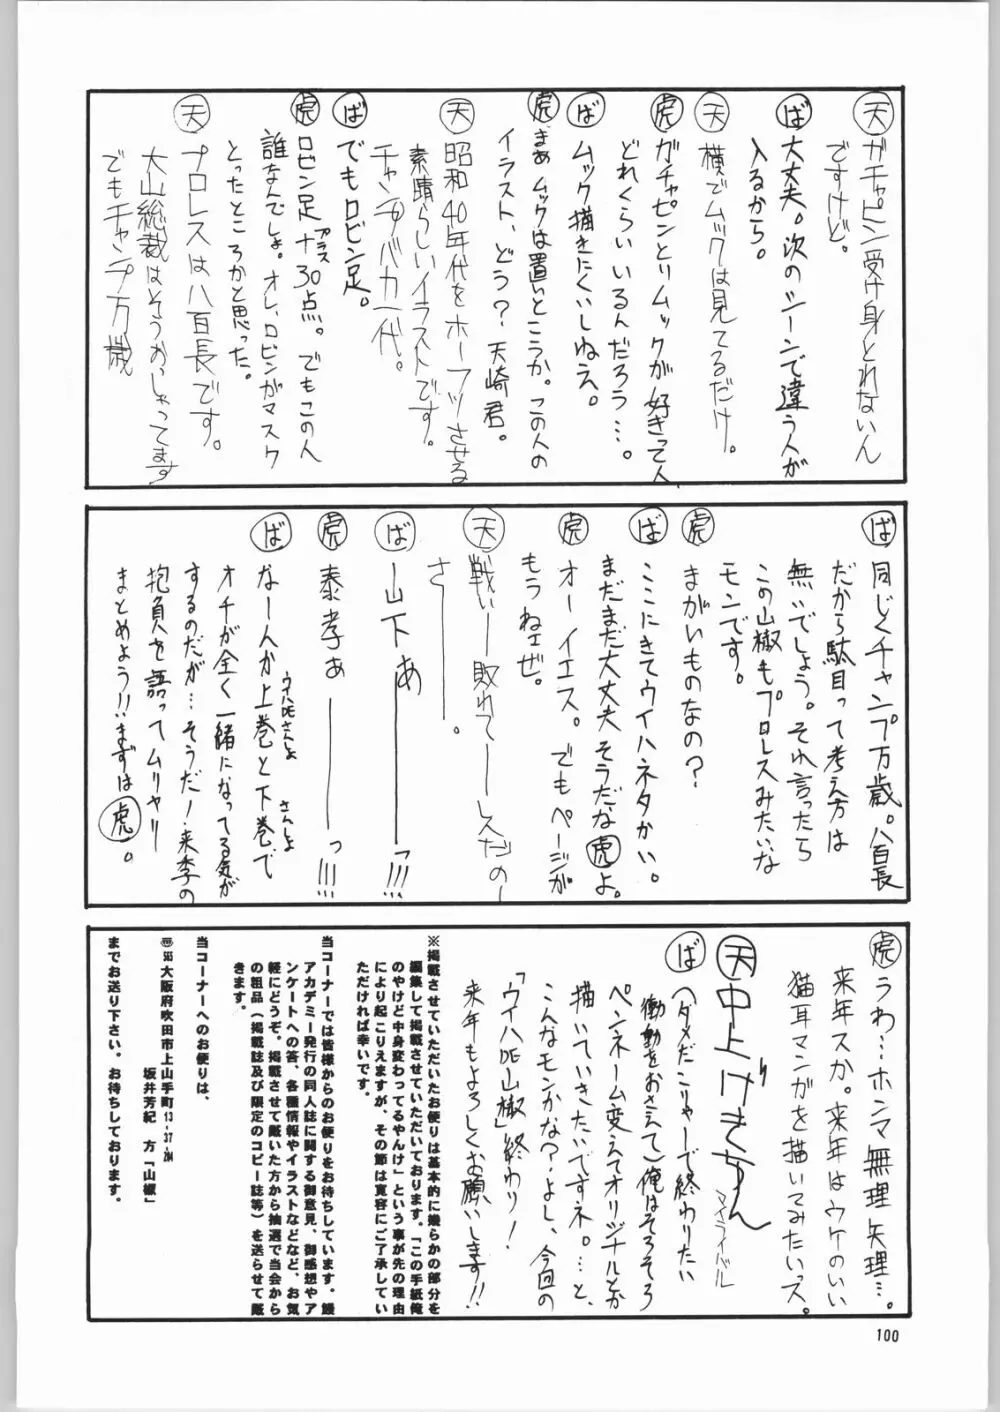 天 ガチャピン受け身とれないん
ですけど。
ば 大丈夫。次のシーンで違う人が
入るから。
天 横でムックは見てるだけ。
虎 ガチャピンとムックが好きって人
どれくらいいるんだろう…。
ば ムック描きにくいしねえ。
虎 まあムックは置いとこうか。この人の
イラスト、どう?天崎君。
天 昭和40年代をホーフツさせる
素晴らしいイラストです。
チャンプバカ一代。
ば でもロビン足。
虎 ロビン足+30点。でもこの人
プラス
誰なんでしょ。オレ、ロビンがマスク
とったところかと思った。
天 プロレスは八百長です。
大山総裁はそうおっしゃってます
でもチャンプ万歳
ば 同じくチャンプ万歳。八百長
だから駄目って考え方は
無いでしょう。それ言ったら
この山椒もプロレスみたいな
モンです。
虎 まがいものなの?
ば ここにきてウイハネタかい。
まだまだ大丈夫そうだな虎よ。
虎 オーイエス。でもページが
もうねェぜ。
天 戦い――敗れて――レスだの―
さ――――。
ば ―山下あ――――っ!!!
虎 泰孝ぁ――――っ!!!
ば なーんか上巻と下巻で
ウイハDEさんしょ さんしょ
オチが全く一緒になってる気が
するのだが…そうだ!来季の
抱負を語ってムリヤリ
まとめよう!!まずは虎。
虎 うわ…ホンマ無理矢理…。
来年スか。来年はウケのいい
猫耳マンガを描いてみたいっス。
天 中上げきちん
マイライバル
ば (ダメだこりゃーで終わりたい
衝動をおさえて)俺はそろそろ
ペンネーム変えてオリジナルとか
描いていきたいですネ。…と、
こんなモンかな?よし、今回の
「ウイハDE山椒」終わり!
来年もよろしくお願いします!!
※掲載させていただいたお便りは基本的に幾らかの部分を
編集して掲載させていただいております。「この手紙俺
のやけど中身変わってるやんけ」という事が先の理由
により起こりえますが、その節は寛容にご了承してい
ただければ幸いです。
当コーナーでは皆様からのお便りをお待ちしています。鰻
アカデミー発行の同人誌に関する御意見、御感想やア
ンケートへの答、各種情報やイラストなどなど、お気
軽にどうぞ。掲載させて戴いた方から抽選で当会から
の粗品(掲載誌及び限定のコピー誌等)を送らせて戴
きます。
当コーナーへのお便りは、
〒565 大阪府吹田市上山手町13-37-204
坂井芳紀 方「山椒」
までお送り下さい。お待ちしております。
100